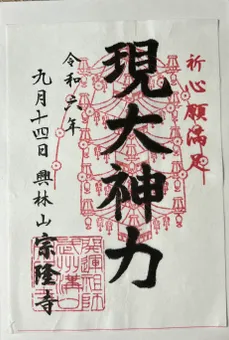 祈心願満足
現大神力
令和六年
九月十四日 興林山宗隆寺